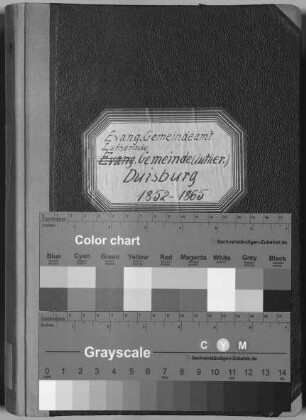 Evang. Gemeindeamt
Lutherische
Evang. Gemeinde (luther.)
Duisburg
1852-1865
Centimetres
Inches
Color chart
Sachverständigen-Zubehör.de
Blue Cyan Green Yellow Red Magenta White Grey Black
Centimetres
Inches
C Y M
Grayscale
Sachverständigen-Zubehör.de
0 1 2 3 4 5 6 7 8 9 10 11 12 13 14